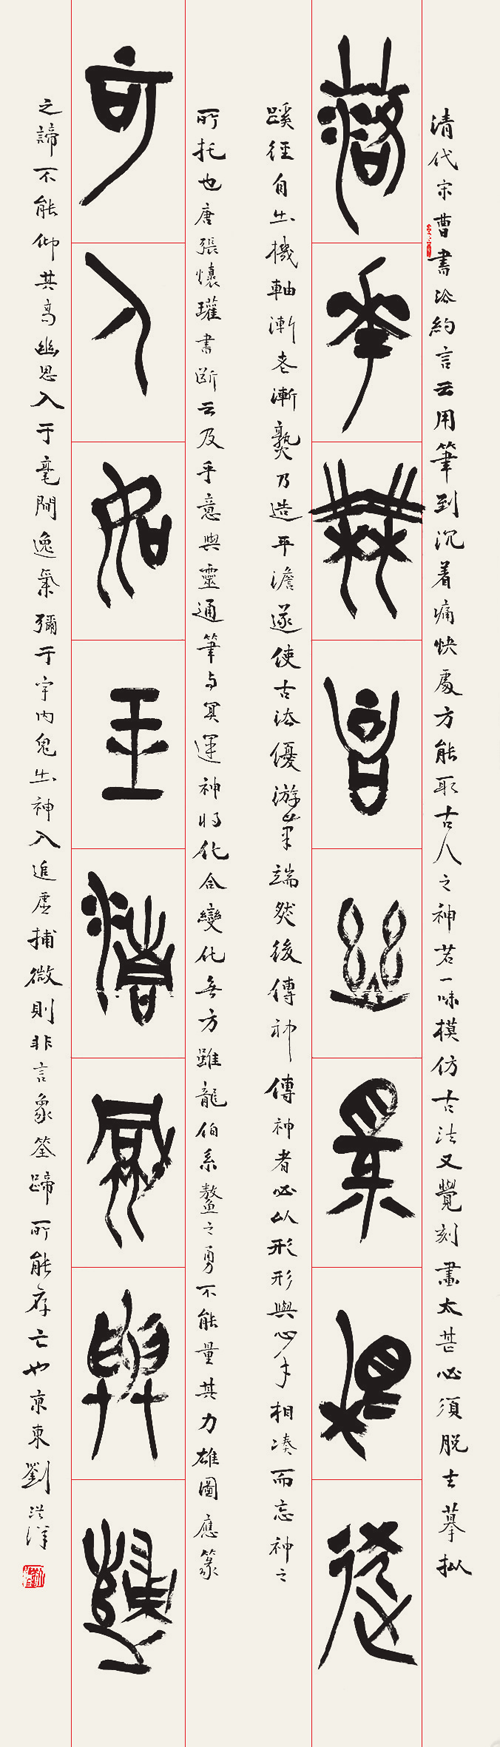 清代宋曹書法約言云用筆到沉着痛快處方能取古人之神若一味模仿古法又覺刻畫太甚必須脫去摹拟
落花無言幽鳥相逐
蹊徑自出機軸漸老漸熟乃造平澹遂使古法優游筆端然後傳神傳神者必以形形與心手相湊而忘神之
所托也唐張懷瓘書斷云及乎意與靈通筆與冥運神將化合變化無方雖龍伯系鰲之勇不能量其力雄圖應篆
可人如玉清風與歸
之諦不能仰其高幽思入于毫間逸氣彌于宇內鬼出神入追虛捕微則非言象筌蹄所能存亡也京東劉洪洋